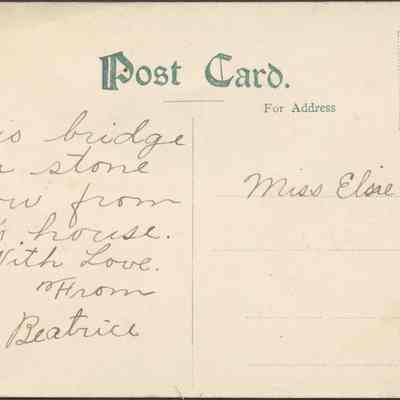 Post Card.
For Address
is bridge
a stone
ow from
s house.
With Love.
From
Beatrice
Miss Elsie